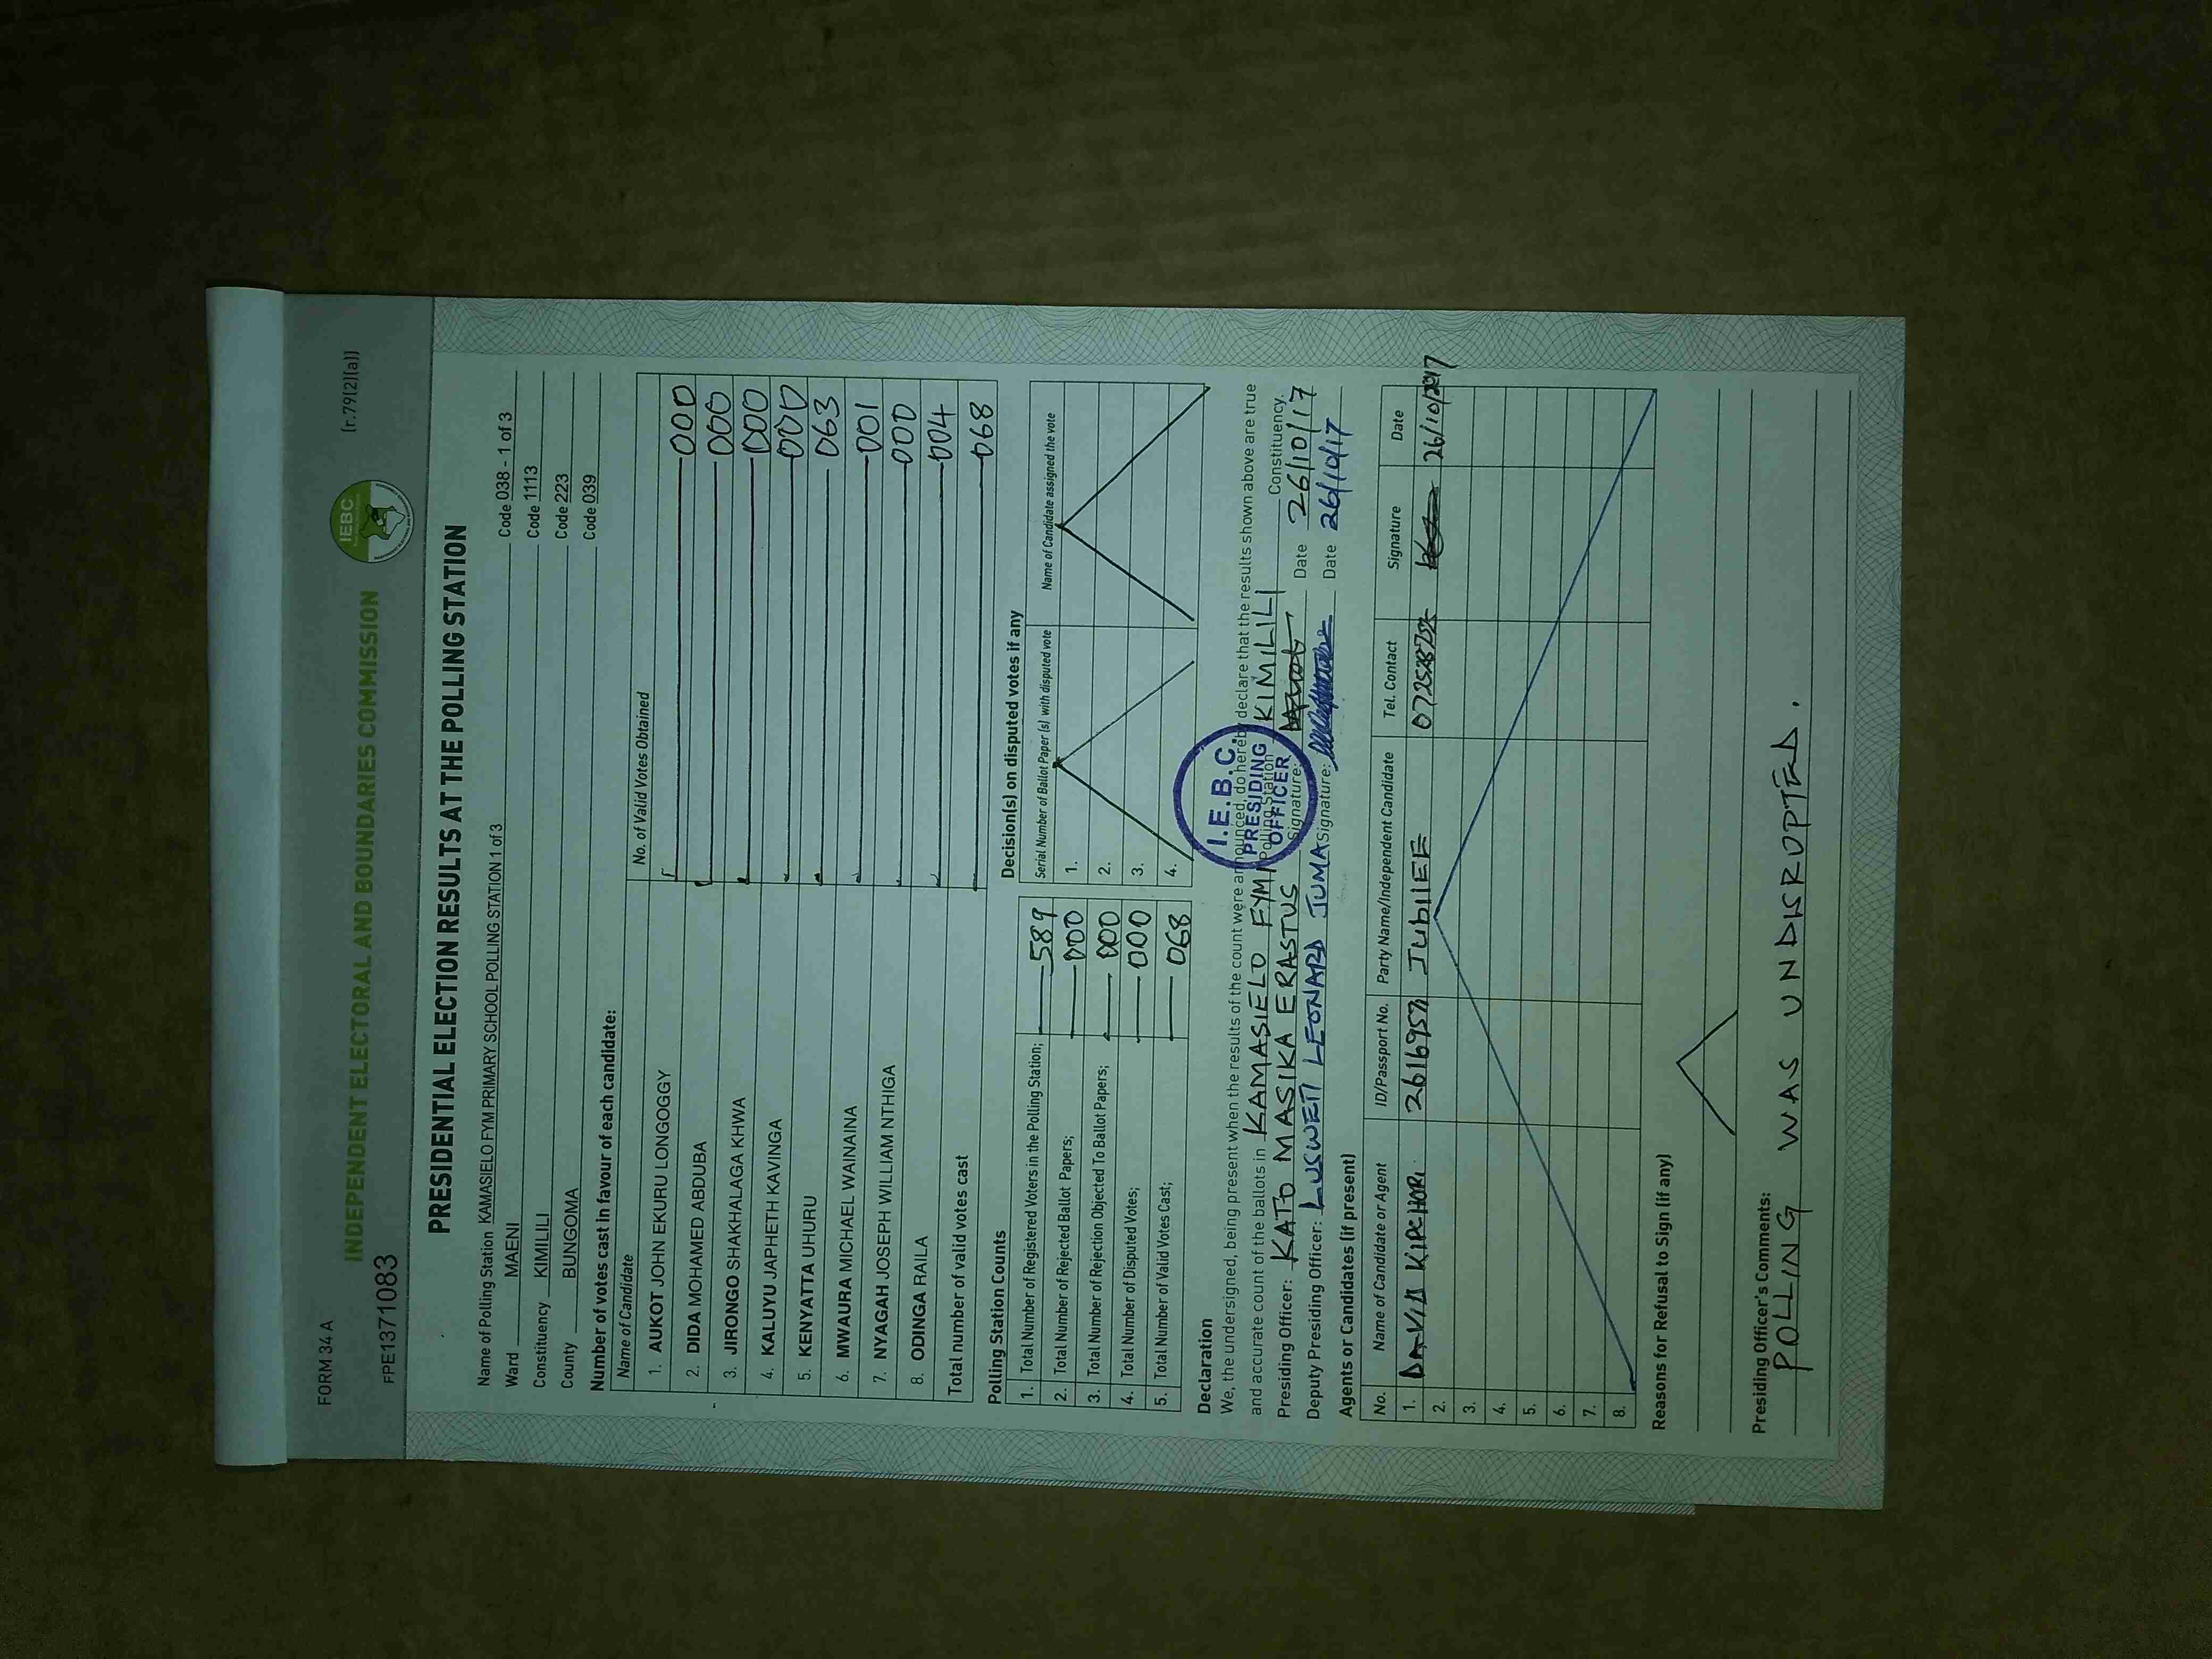 FORM 34 A
[r.79(2)(a)]
INDEPENDENT ELECTORAL AND BOUNDARIES COMMISSION
IEBC
FPE1371083
PRESIDENTIAL ELECTION RESULTS AT THE POLLING STATION
Name of Polling Station KAMASIELO FYM PRIMARY SCHOOL POLLING STATION 1 of 3 Code 038 - 1 of 3
Ward MAENI Code 1113
Constituency KIMILILI Code 223
County BUNGOMA Code 039
Number of votes cast in favour of each candidate:
Name of Candidate No. of Valid Votes Obtained
1. AUKOT JOHN EKURU LONGOGGY 000
2. DIDA MOHAMED ABDUBA 000
3. JIRONGO SHAKHALAGA KHWA 000
4. KALUYU JAPHETH KAVINGA 000
5. KENYATTA UHURU 063
6. MWAURA MICHAEL WAINAINA 001
7. NYAGAH JOSEPH WILLIAM NTHIGA 000
8. ODINGA RAILA 004
Total number of valid votes cast 068
Polling Station Counts
1. Total Number of Registered Voters in the Polling Station; 589
2. Total Number of Rejected Ballot Papers; 000
3. Total Number of Rejection Objected To Ballot Papers; 000
4. Total Number of Disputed Votes; 000
5. Total Number of Valid Votes Cast; 068
Decision(s) on disputed votes if any
Serial Number of Ballot Paper (s) with disputed vote Name of Candidate assigned the vote
1.
2.
3.
4.
Declaration
We, the undersigned, being present when the results of the count were announced, do hereby declare that the results shown above are true
and accurate count of the ballots in KAMASIELO FYM Polling Station KIMILILI Constituency.
Presiding Officer: KATO MASIKA ERASTUS Signature: Date 26/10/17
Deputy Presiding Officer: LUSWETI LEONARD JUMA Signature: Date 26/10/17
I.E.B.C.
PRESIDING
OFFICER
Agents or Candidates (if present)
No. Name of Candidate or Agent ID/Passport No. Party Name/Independent Candidate Tel. Contact Signature Date
1. DAVID JUbilEE 26/10/2017
2.
3.
4.
5.
6.
7.
8.
Reasons for Refusal to Sign (if any)
Presiding Officer's Comments:
POLLING WAS UNDISRUPTED.